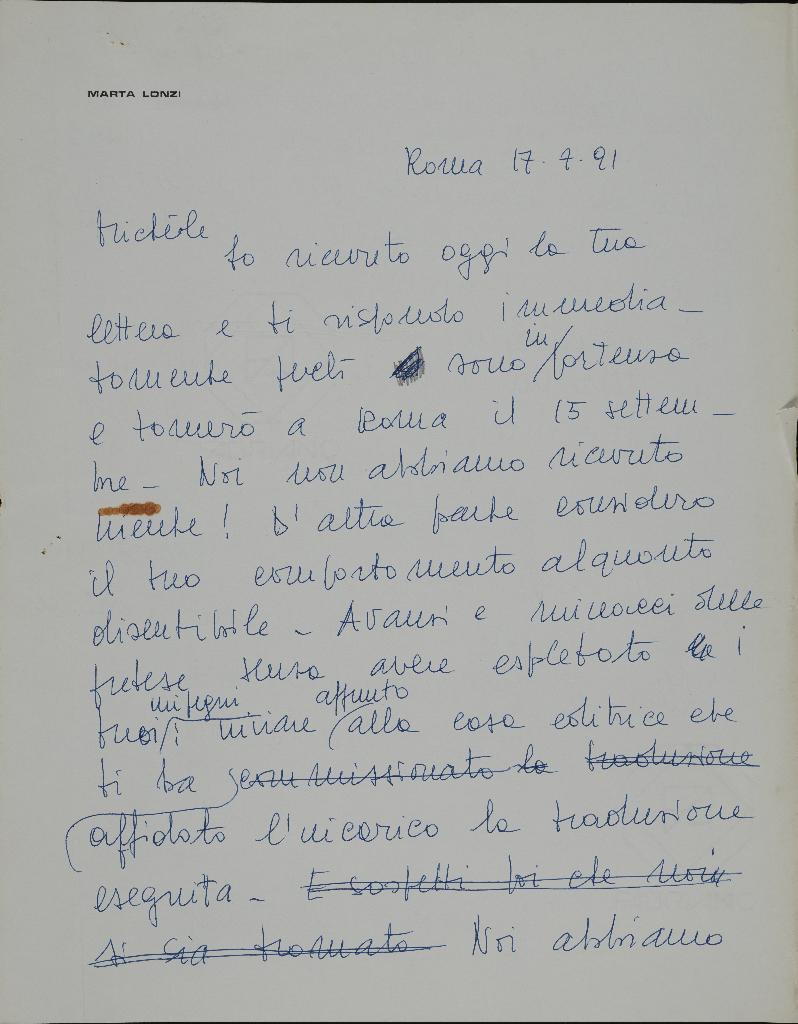 MARTA LONZI
Roma 17.7.91
Michèle
ho ricevuto oggi la tua
lettera e ti rispondo immedia_
tamente sono in partenza
e tornerò a Roma il 15 settem_
bre_ Noi non abbiamo ricevuto
niente! D'altra parte considero
il tuo comportamento alquanto
discutibile_ Avanzi e minacci delle
pretese senza avere espletato i
impegni appunto
tuoi: inviare alla casa editrice che
ti ha commissionato la traduzione
affidato l'incarico la traduzione
eseguita_ E sospetti poi che
si sia Noi abbiamo